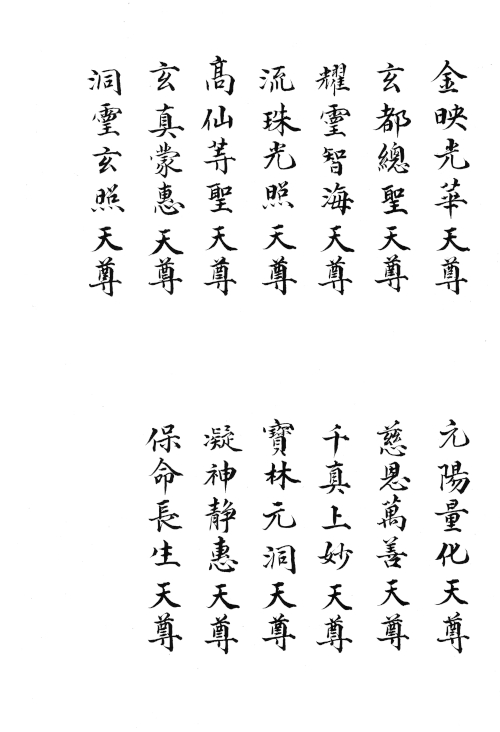 金映光華天尊
玄都總聖天尊
耀霊智海天尊
流珠光照天尊
髙仙䓁聖天尊
玄真蒙惠天尊
洞霊玄照天尊
元陽量化天尊
慈恩萬善天尊
千真上妙天尊
寶林元洞天尊
凝神静惠天尊
保命長生天尊